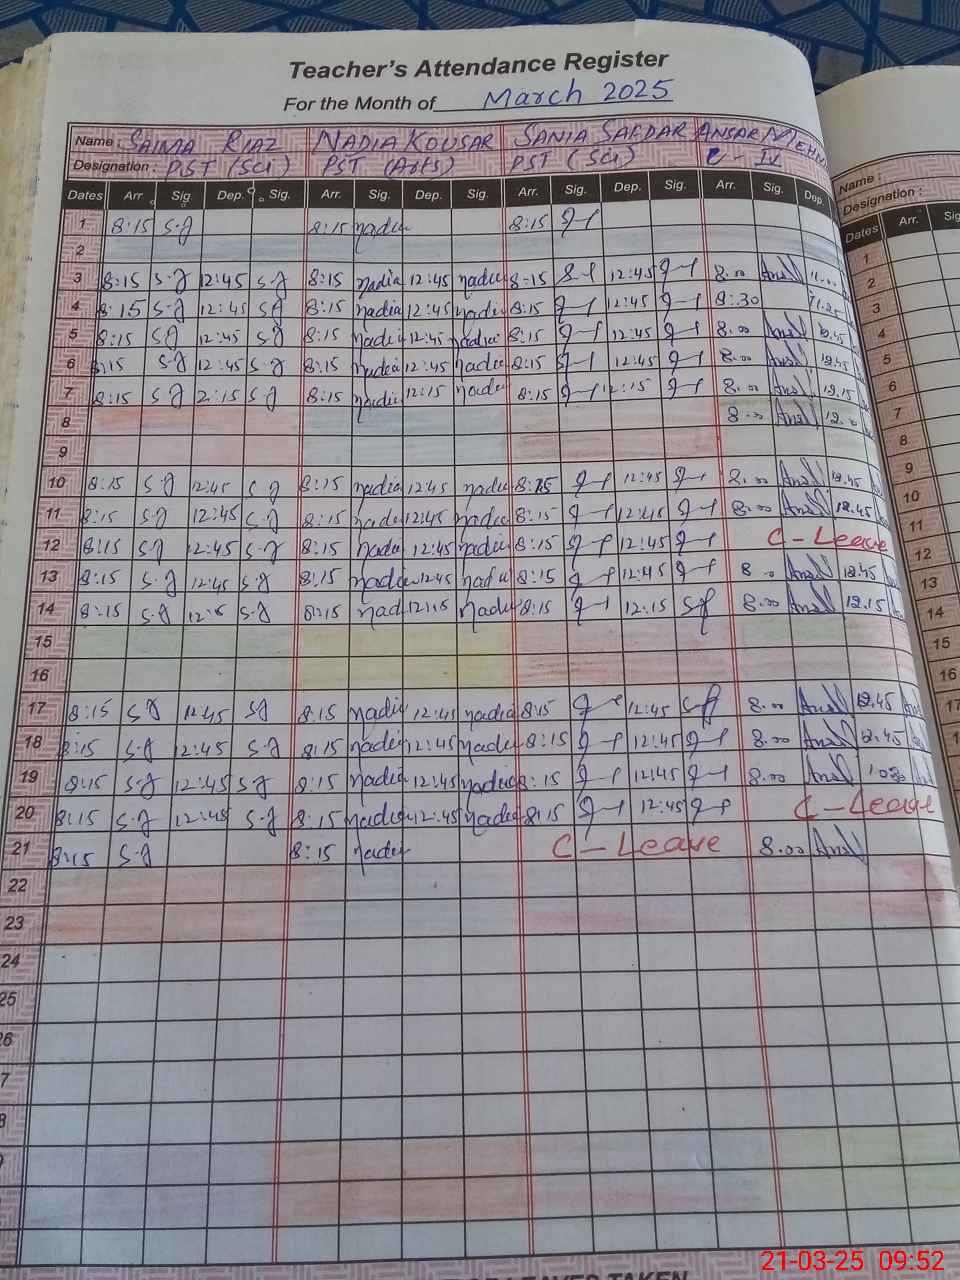 Teacher's Attendance Register
For the Month of March 2025
Name : SAIMA RIAZ NADIA KOUSAR SANIA SAFDAR ANSAR MEHM
Designation : PST (Sci) PST (Arts) PST (Sci) C - IV
Dates Arr. Sig Dep. Sig. Arr. Sig. Dep. Sig. Arr. Sig. Dep. Sig. Arr. Sig. Dep.
1 8:15 S-J 8:15 nadia 8:15
2
3 8:15 S-J 12:45 S-J 8:15 nadia 12:45 nadia 8:15 12:45 8.00
4 8:15 S-J 12:45 SJ 8:15 nadia 12:45 nadia 8:15 12:45 8:30 11.25
5 8:15 SJ 12:45 SJ 8:15 nadia 12:45 nadia 8:15 12:45 8.00 12.45
6 8:15 SJ 12:45 S-J 8:15 nadia 12:45 nadia 8:15 12:45 8.00 12.45
7 8:15 S-J 2:15 S-J 8:15 nadia 12:15 nadia 8:15 12:15 8.00 12.15
8 8.00
9
10 8:15 S-J 12:45 SJ 8:15 nadia 12:45 nadia 8:15 12:45 8.00 12.45
11 8:15 SJ 12:45 S-J 8:15 nadia 12:45 nadia 8:15 12:45 8.00 12.45
12 8:15 SJ 12:45 S-J 8:15 nadia 12:45 nadia 8:15 12:45 C - Leave
13 8:15 S-J 12:45 S-J 8:15 nadia 12:45 nadia 8:15 12:45 8 12.45
14 8:15 S-J S-J 8:15 nadi 12:15 nadia 8:15 12.15 8.00 12.15
15
16
17 8:15 SJ 12:45 SJ 8:15 nadia 12:45 nadia 8:15 12:45 8.00 12.45
18 8:15 S-J 12:45 S-J 8:15 nadia 12:45 nadia 8:15 12:45 8.00 12.45
19 8:15 S-J 12:45 S-J 8:15 nadia 12:45 nadia 8:15 12:45 8.00
20 8:15 S-J 12:45 S-J 8:15 nadia 12:45 nadia 8:15 12:45 C - Leave
21 8:15 S-J 8:15 nadia C - Leave 8.00
22
23
24
25
26
7
8
Name :
Designation :
Dates Arr. Sig
1
2
3
4
5
6
7
8
9
10
11
12
13
14
15
16
17
LEAVES TAKEN
21-03-25 09:52